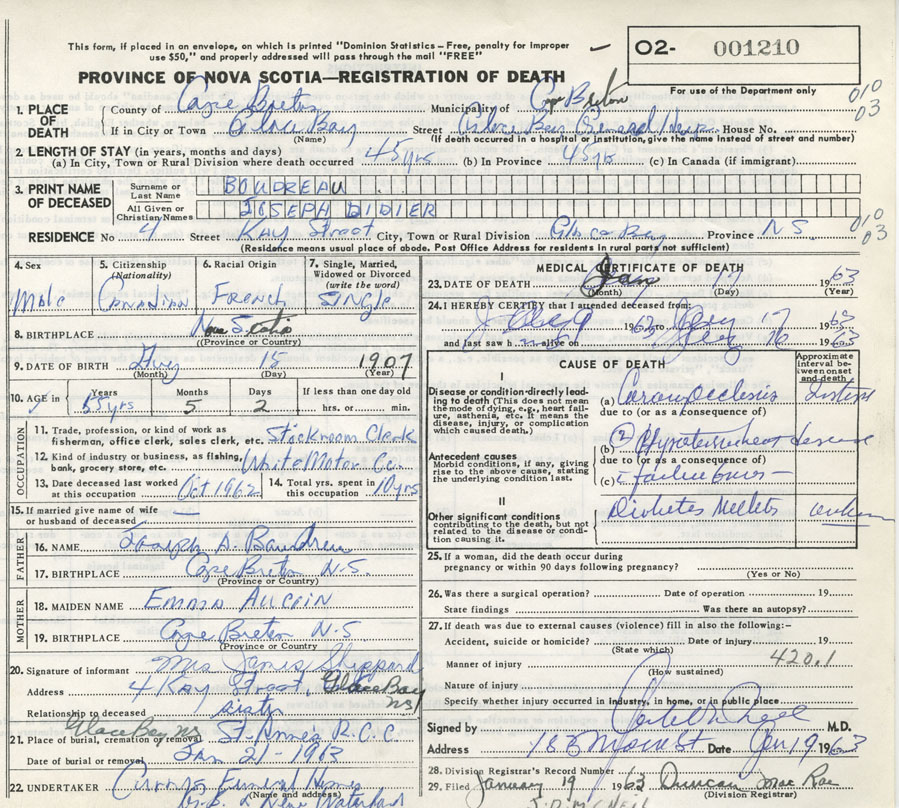 This form, if placed in an envelope, on which is printed "Dominion Statistics—Free, penalty for improper
use $50," and properly addressed will pass through the mail "FREE"
02- 001210
For use of the Department only
PROVINCE OF NOVA SCOTIA—REGISTRATION OF DEATH
010
03
1. PLACE OF DEATH County of Cape Breton Municipality of Cape Breton
If in City or Town Glace Bay Street Glace Bay General House No.
(Name) (If death occurred in a hospital or institution, give the name instead of street and number)
2. LENGTH OF STAY (in years, months and days)
(a) In City, Town or Rural Division where death occurred 45 yrs (b) In Province 45 yrs (c) In Canada (if immigrant)
3. PRINT NAME OF DECEASED Surname or Last Name BOUDREAU
All Given or Christian Names JOSEPH DIDIER
RESIDENCE No 4 Street Kay Street City, Town or Rural Division Glace Bay Province NS
010
03
(Residence means usual place of abode. Post Office Address for residents in rural parts not sufficient)
4. Sex Male
5. Citizenship (Nationality) Canadian
6. Racial Origin French
7. Single, Married, Widowed or Divorced (write the word) Single
8. BIRTHPLACE Nova Scotia
(Province or Country)
9. DATE OF BIRTH Aug 15 1907
(Month) (Day) (Year)
10. AGE in Years 55 yrs Months 5 Days 2 If less than one day old hrs. or min.
OCCUPATION
11. Trade, profession, or kind of work as fisherman, office clerk, sales clerk, etc. Stockroom Clerk
12. Kind of industry or business, as fishing, bank, grocery store, etc. White Motor Co.
13. Date deceased last worked at this occupation Oct 1962
14. Total yrs. spent in this occupation 10 yrs
15. If married give name of wife or husband of deceased —
FATHER
16. NAME Joseph A. Boudreau
17. BIRTHPLACE Cape Breton N.S.
(Province or Country)
MOTHER
18. MAIDEN NAME Emma Aucoin
19. BIRTHPLACE Cape Breton N.S
(Province or Country)
20. Signature of informant Mrs James Sheppard
Address 4 Kay Street, Glace Bay NS
Relationship to deceased sister
Glace Bay NS
21. Place of burial, cremation or removal St. Anne's R.C.C
Date of burial or removal Jan 21 - 1963
22. UNDERTAKER Funeral Home
(Name and address)
MEDICAL CERTIFICATE OF DEATH
23. DATE OF DEATH Jan 17 1963
(Month) (Day) (Year)
24. I HEREBY CERTIFY that I attended deceased from:
1963 17 1963
and last saw h alive on 16 1963
CAUSE OF DEATH
Approximate interval between onset and death
I
Disease or condition directly leading to death (This does not mean the mode of dying, e.g., heart failure, asthenia, etc. It means the disease, injury, or complication which caused death.)
(a) Coronary Occlusion
due to (or as a consequence of)
Antecedent causes
Morbid conditions, if any, giving rise to the above cause, stating the underlying condition last.
(b) heart disease
due to (or as a consequence of)
(c) failure
II
Other significant conditions contributing to the death, but not related to the disease or condition causing it.
Diabetes Mellitus
25. If a woman, did the death occur during pregnancy or within 90 days following pregnancy?
(Yes or No)
26. Was there a surgical operation? Date of operation 19
State findings Was there an autopsy?
27. If death was due to external causes (violence) fill in also the following:-
Accident, suicide or homicide? Date of injury 19
(State which)
Manner of injury 420.1
(How sustained)
Nature of injury
Specify whether injury occurred in industry, in home, or in public place
Signed by M.D.
Address Date Jan 19 1963
28. Division Registrar's Record Number
29. Filed January 19 1963 Duncan Mac Rae
(Division Registrar)
J.D. McNEIL